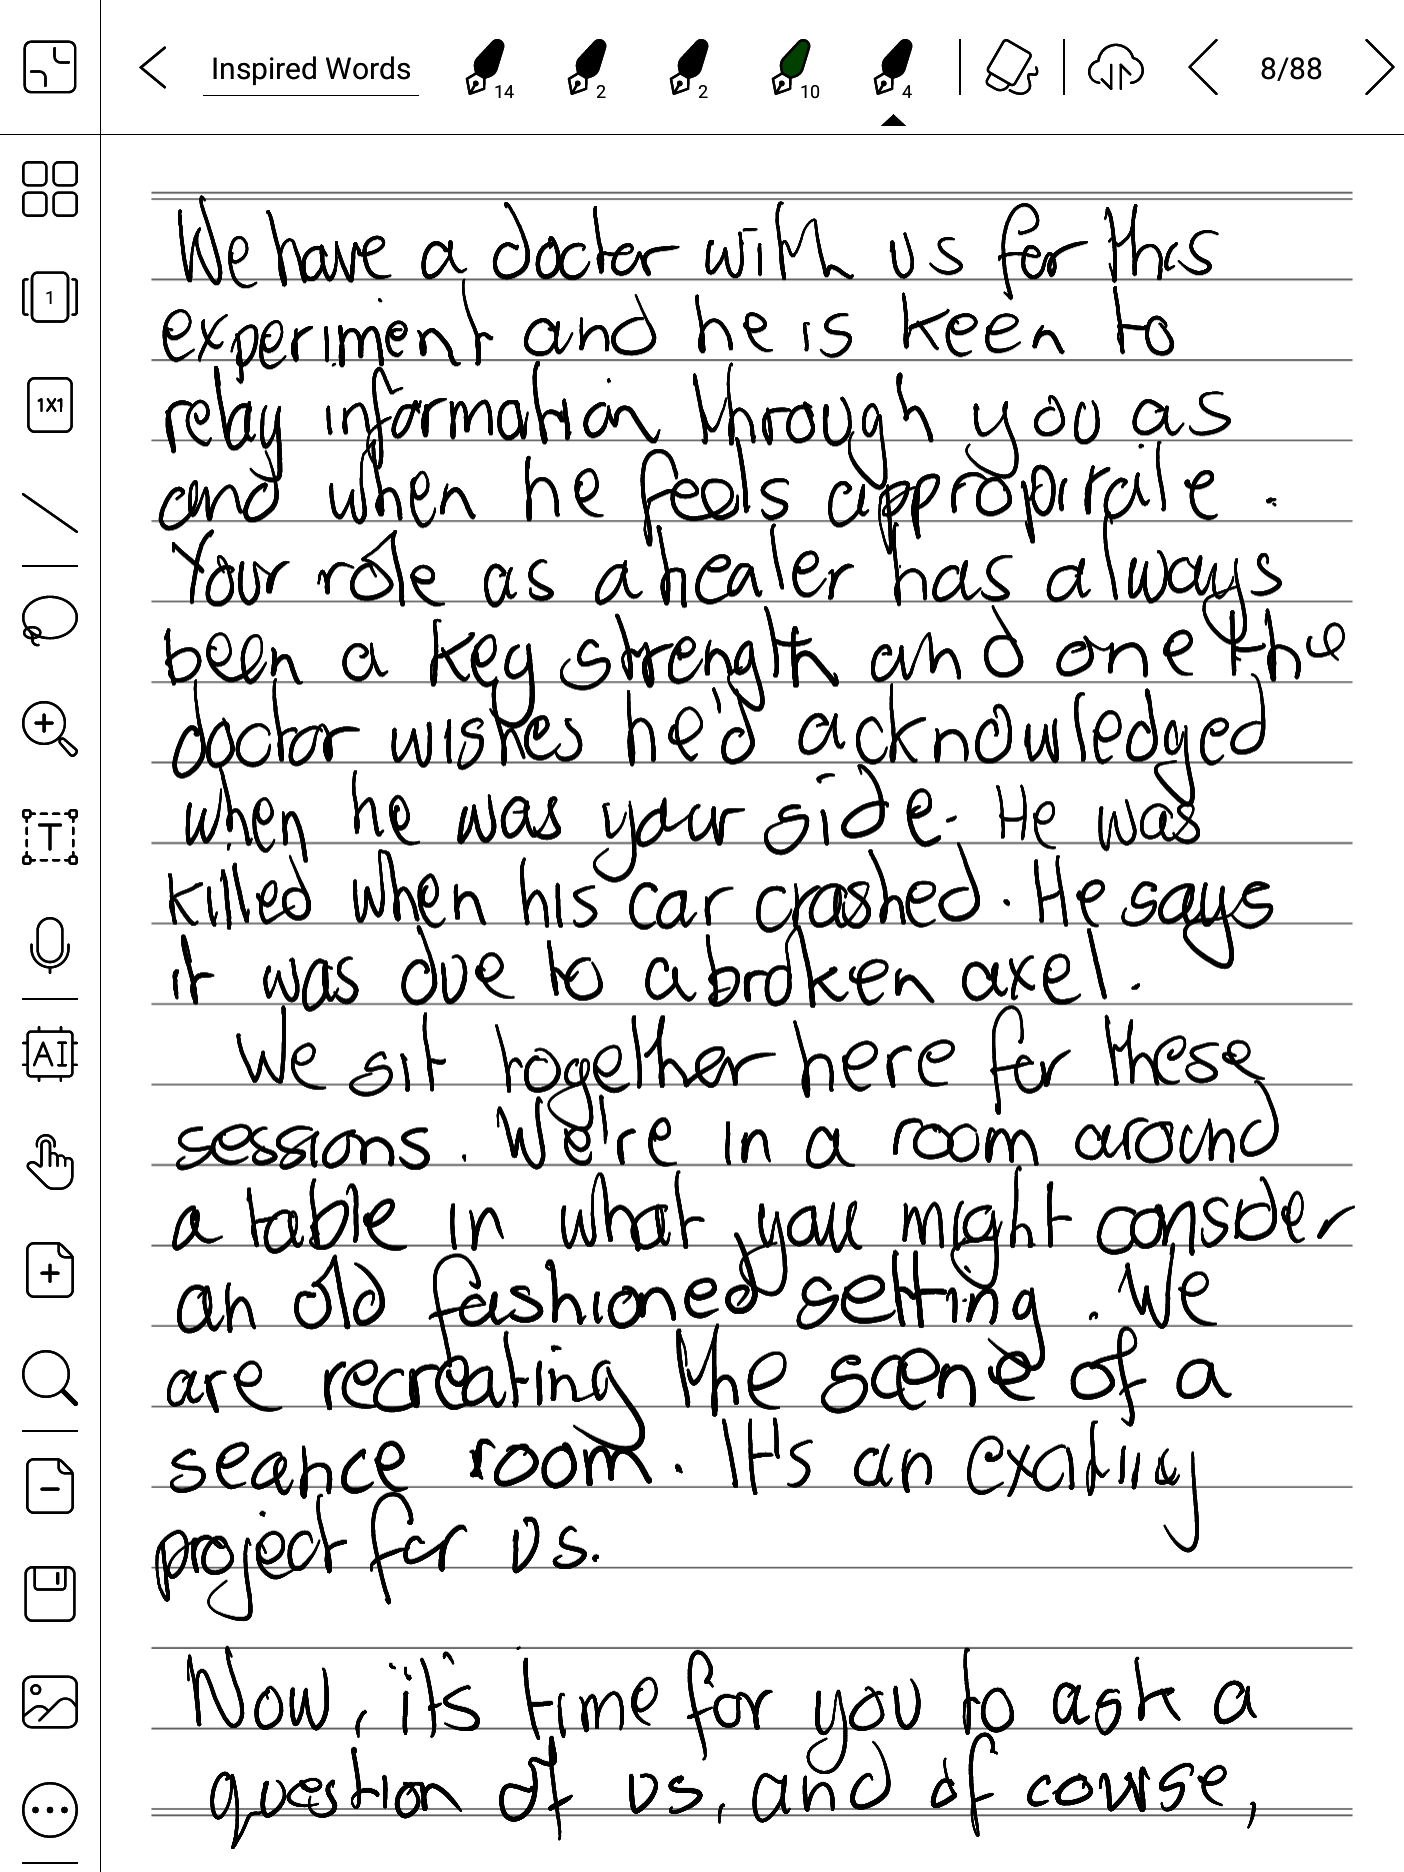 Inspired Words
14
2
2
10
4
8/88
1
1X1
T
AI
We have a docter with us for this
experiment and he is keen to
relay information through you as
and when he feels appropirate.
Your role as a healer has always
been a key strength and one the
doctor wishes he'd acknowledged
when he was your side. He was
killed when his car crashed. He says
it was due to a broken axel.
We sit together here for these
sessions. We're in a room around
a table in what you might consider
an old fashioned setting. We
are recreating the scene of a
seance room. It's an exciting
project for us.
Now, it's time for you to ask a
question of us, and of course,